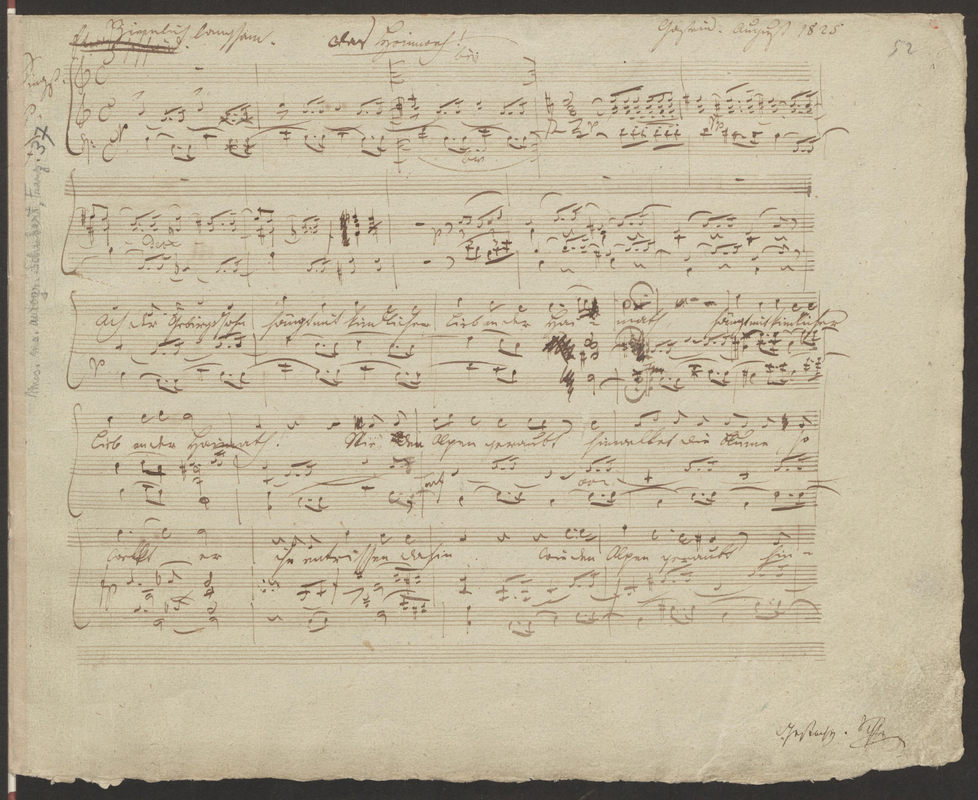 Ziemlich langsam.
das Heimweh!
Gastein. August 1825
52
Mus. ms. autogr. Schubert, Franz: 37
Ach der Gebirgssohn hängt mit kindlicher Lieb an der Hei- math hängt mit kindlicher
Lieb an der Heimath! Wie den Alpen geraubt hinwelket die Blume so
welkt er ihr entrissen dahin wie den Alpen geraubt hin-